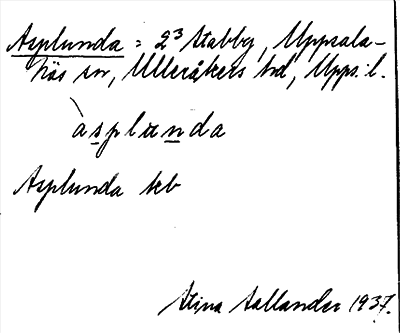 Asplunda = 2³ Stabby, Uppsala-
Näs sn, Ulleråkers hd, Upps. l.
àsplunda
Asplunda teb
Stina Sallander 1937.